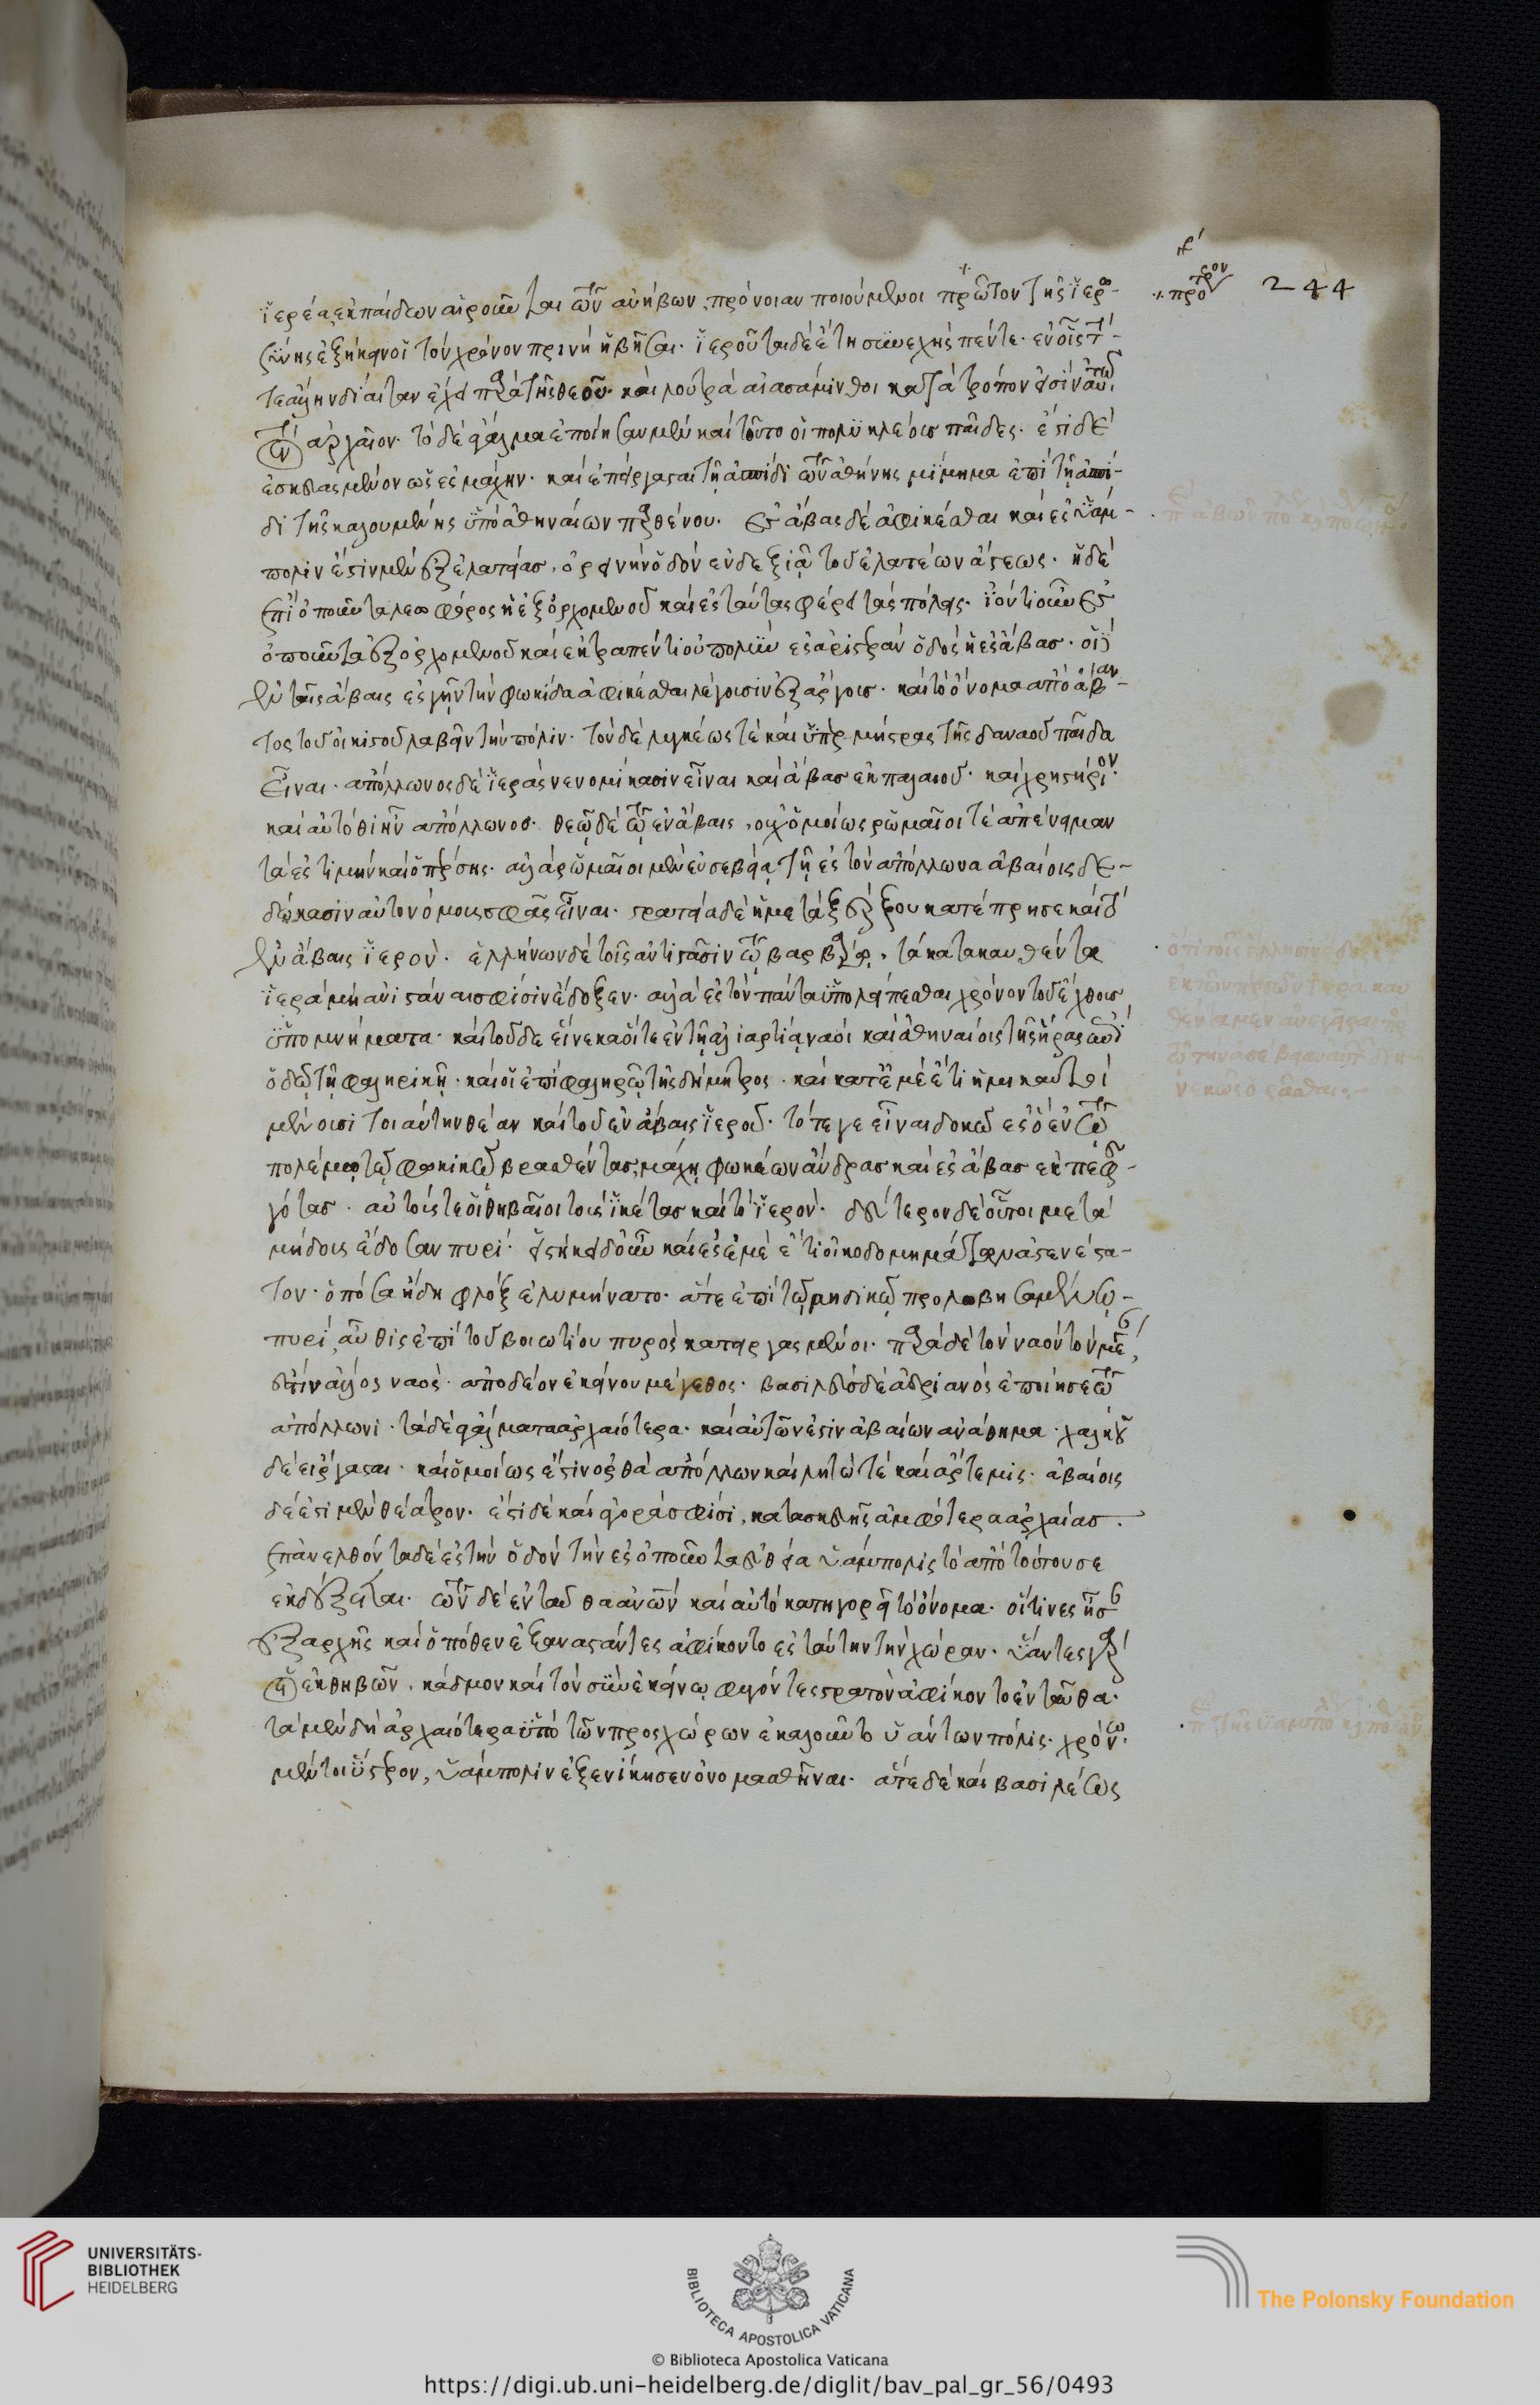 ἱερέα ἐκ παίδων αἱροῦνται τῶν ἀνήβων, πρόνοιαν ποιούμενοι πρῶτον τῆς ἱερω-
σύνης ἐξήκειν οἱ τὸν χρόνον πρινὴ ἡβῆσαι· ἱεροῦται δὲ ἔτη συνεχῆς πέντε· ἐν οἷς τήν
τε ἄλλην δίαιταν ἔχει παρὰ τῆ θεοῦ· καὶ λουτρὰ αἱ ἀσάμινθοι κατὰ τρόπον εἰσὶν αὐτῶ
τὸν ἀρχαῖον· τὸ δὲ ἄγαλμα ἐποίησαν μὲν καὶ τοῦτο οἱ πολυκλέοις παῖδες· ἔστι δὲ
ἐσκευασμένον ὡς ἐς μάχην· καὶ ἐπείργασται τῆ ἀσπίδι τῶν ἀθήνης μίμημα ἐπὶ τῆ ἀσπί-
δι τῆς καλουμένης ὑπὸ ἀθηναίων παρθένου· ἐς ἄβας δὲ ἀφικέσθαι καὶ ἐς ὑάμ-
πολιν ἔστιν μὲν ἐξ ἐλατείας, ὀρεινὴν ὁδὸν ἐν δεξιᾷ τοῦ ἐλατέων ἄστεως· ἡ δὲ
ἐπὶ ὀποῦντα λεωφόρος ἡ ἐξ ὀρχομενοῦ καὶ ἐς ταύτας φέρει τὰς πόλεις· ἰόντι οὖν ἐς
ὀποῦντα ἐξ ὀρχομενοῦ καὶ ἐκτραπέντι οὐ πολὺ ἐς ἀριστερὰν ὁδός ἡ ἐς ἄβας· οἱ δὲ
ἐν ταῖς ἄβαις ἐς γῆν τὴν φωκίδα ἀφικέσθαι λέγουσιν ἐξ ἄργους· καὶ τὸ ὄνομα ἀπὸ ἄβαν-
τος τοῦ οἰκιστοῦ λαβεῖν τὴν πόλιν· τὸν δὲ λυγκέως τὲ καὶ ὑπερμήστρας τῆς δαναοῦ παῖδα
εἶναι· ἀπόλλωνος δὲ ἱερὰς νενομίκασιν εἶναι καὶ ἄβας ἐκ παλαιοῦ· καὶ χρηστήριον
καὶ αὐτόθι ἦν ἀπόλλωνος· θεῷ δὲ τῷ ἐν ἄβαις, οὐχ ὁμοίως ῥωμαῖοι τὲ ἀπένειμαν
τὰ ἐς τιμὴν καὶ ὁ πέρσης· ἀλλὰ ῥωμαῖοι μὲν εὐσεβείᾳ τῇ ἐς τὸν ἀπόλλωνα ἀβαίοις δε-
δώκασιν αὐτονόμους σφᾶς εἶναι· στρατεία δὲ ἡ μετὰ ξέρξου κατέπρησε καὶ τὸ
ἐν ἄβαις ἱερόν· ἑλλήνων δὲ τοῖς ἀντιστᾶσιν τῷ βαρβάρῳ, τὰ κατακαυθέντα
ἱερὰ μὴ ἀνιστάναι σφίσιν ἔδοξεν· ἀλλὰ ἐς τὸν πάντα ὑπολείπεσθαι χρόνον τοῦ ἔχθους
ὑπομνήματα· καὶ τοῦδε εἵνεκα οἵ τε ἐν τῇ ἁλιαρτίᾳ ναοὶ καὶ ἀθηναίοις τῆς ἥρας ἐπὶ
ὁδῷ τῇ φαληρικῇ· καὶ ὁ ἐπὶ φαληρῷ τῆς δήμητρος· καὶ κατ' ἐμὲ ἔτι ἡμίκαυτοι
μένουσι τοιαύτην θέαν καὶ τοῦ ἐν ἄβαις ἱεροῦ· τότε γε εἶναι δοκῶ ἐς ὃ ἐν τῷ
πολέμῳ τῷ φωκικῷ βιασθέντας μάχῃ φωκέων ἄνδρας καὶ ἐς ἄβας ἐκπεφευ-
γότας· αὐτούς τε οἱ θηβαῖοι τοὺς ἱκέτας καὶ τὸ ἱερόν· δεύτερον δὲ οὗτοι μετὰ
μήδους ἔδοσαν πυρί· εἱστήκει δ' οὖν καὶ ἐς ἐμὲ ἔτι οἰκοδομημάτων ἀσθενέστα-
τον· ὁπόσα ἤδη φλὸξ ἐλυμήνατο· ἅτε ἐπὶ τῷ μηδικῷ προλωβησαμένῳ
πυρί, αὖθις ἐπὶ τοῦ βοιωτίου πυρὸς κατειργασμένοι· παρὰ δὲ τὸν ναὸν τὸν μέγαν,
ἐστὶν ἄλλος ναός· ἀποδέον ἐκείνου μέγεθος· βασιλεὺς δὲ ἀδριανὸς ἐποίησε τῷ
ἀπόλλωνι· τὰ δὲ ἀγάλματα ἀρχαιότερα· καὶ αὐτῶν ἐστιν ἀβαίων ἀνάθημα· χαλκοῦ
δὲ εἴργασται· καὶ ὁμοίως ἐστὶν ὀρθὰ ἀπόλλων καὶ λητώ τὲ καὶ ἄρτεμις· ἀβαίοις
δὲ ἔστι μὲν θέατρον· ἔστι δὲ καὶ ἀγορά σφίσι, κατασκευῆς ἀμφότερα ἀρχαίας·
ἐπανελθόντα δὲ ἐς τὴν ὁδὸν τὴν ἐς ὀποῦντα εὐθεῖα ὑάμπολις τὸ ἀπὸ τούτου σε
ἐκδέξεται· τῶν δὲ ἐνταῦθα ἀνῶν καὶ αὐτὸ κατηγορεῖ τὸ ὄνομα· οἵτινες ἦσαν
ἐξαρχῆς καὶ ὁπόθεν ἐξαναστάντες ἀφίκοντο ἐς ταύτην τὴν χώραν· ὕαντες γὰρ
οἱ ἐκ θηβῶν, κάδμον καὶ τὸν σὺν ἐκείνῳ φυγόντες στρατὸν ἀφίκοντο ἐνταῦθα·
τὰ μὲν δὴ ἀρχαιότερα ὑπὸ τῶν προσχώρων ἐκαλοῦντο ὑάντων πόλις· χρόνῳ
μέντοι ὕστερον, ὑάμπολιν ἐξενίκησεν ὀνομασθῆναι· ἅτε δὲ καὶ βασιλέως
πρότερον
244
UNIVERSITÄTS-
BIBLIOTHEK
HEIDELBERG
BIBLIOTECA APOSTOLICA VATICANA
The Polonsky Foundation
© Biblioteca Apostolica Vaticana
https://digi.ub.uni-heidelberg.de/diglit/bav_pal_gr_56/0493